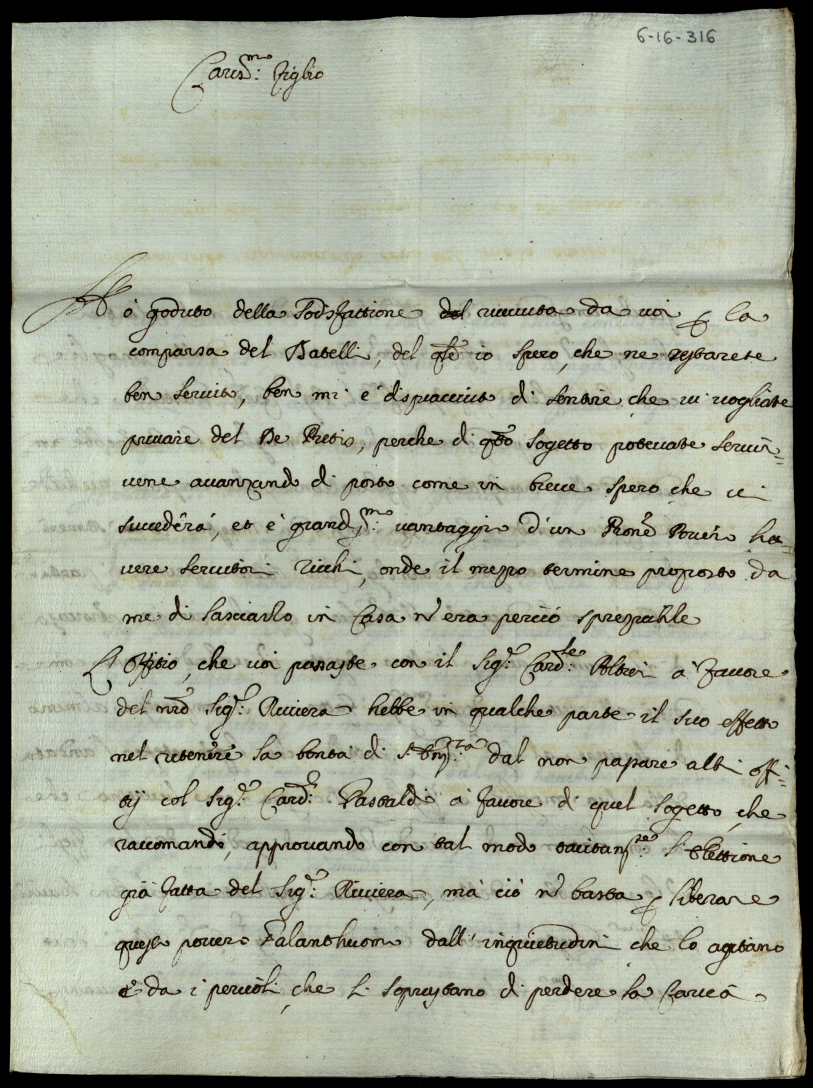 6-16-316
Cariss.mo: Figlio
Hò goduto della Sodisfattione riceuuta da uoi per la
comparsa del Batelli, del qle io spero, che ne restarete
ben seruito, ben mi è dispiacciuto di sentire che ui uogliate
priuare del De Rubis, perche di qto sogetto poteuate seruir=
uene auanzando di posto come in breue spero che ui
succederà, et è grandss.mo: uantaggio d'un Prone Pouero ha=
uere seruitori ricchi, onde il mezzo termine proposto da
me di lasciarlo in Casa n era perciò sprezzabile
L'offitio, che uoi passaste con il Sig.r: Card.le: à fauore
del nro Sig.r: Riuiera hebbe in qualche parte il suo effetto
nel ritenere la bontà di S. Em.za: dal non passare altri offi=
tij col Sig.r: Card.l: Castaldi à fauore di quel sogetto, che
raccomandò, approuando con tal modo tacitam.te: l'elettione
già fatta del Sig.r: Riuiera, mà ciò n basta per liberare
questo pouero Galanthuomo dall'inquietudini che lo agitano
e da i pericoli, che li soprastano di perdere la Carica